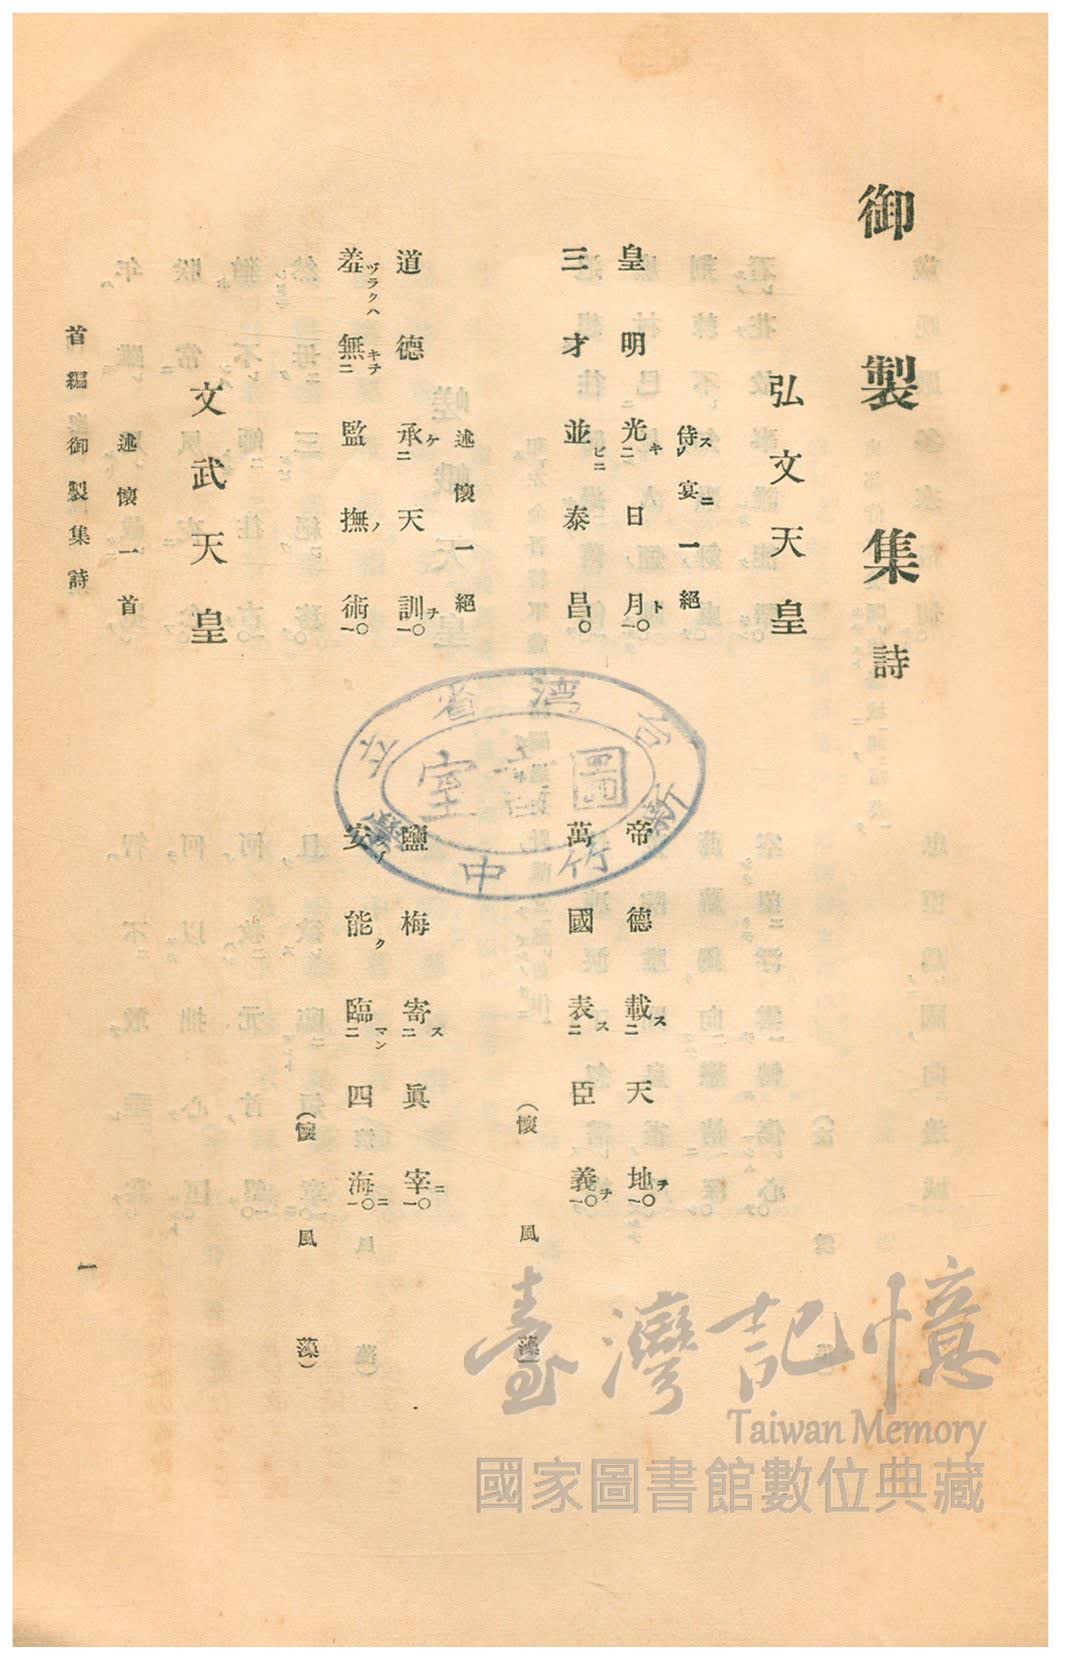 御製集詩
弘文天皇
侍宴一絕
皇明光日月。 帝德載天地。
三才並泰昌。 萬國表臣義。
(懷風藻)
述懷一絕
道德承天訓。 鹽梅寄眞宰。
羞無監撫術。 安能臨四海。
(懷風藻)
文武天皇
述懷一首
首編 御製集詩
一
台灣省立新竹中學
圖書室
臺灣記憶
Taiwan Memory
國家圖書館數位典藏